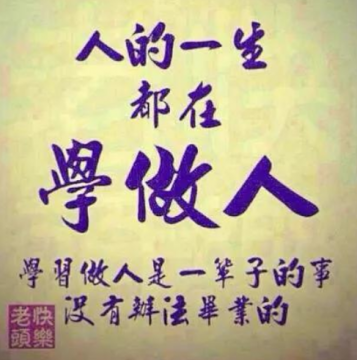 人的一生
都在
學做人
學習做人是一輩子的事
沒有辦法畢業的
快樂
老頭